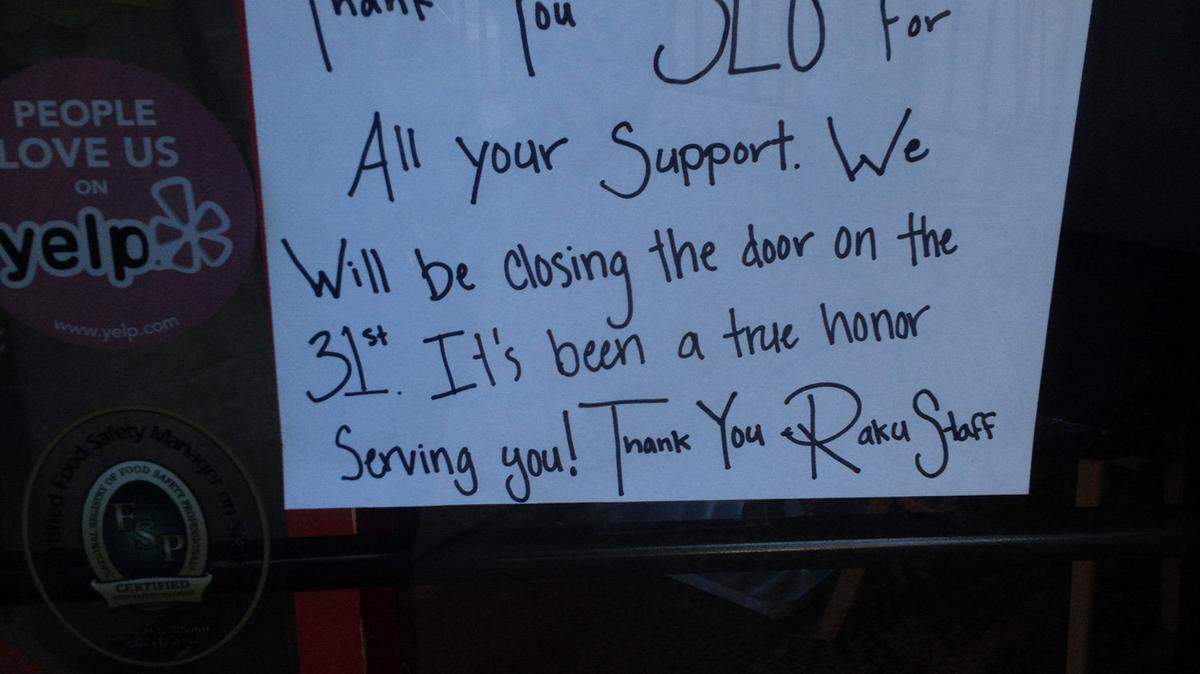 Thank You SLO For
All your Support. We
Will be closing the door on the
31st. It's been a true honor
Serving you! Thank You Raku Staff
PEOPLE
LOVE US
ON
yelp
www.yelp.com
Certified Food Safety Manager on
NATIONAL REGISTRY OF FOOD SAFETY PROFESSIONALS
FSP
CERTIFIED